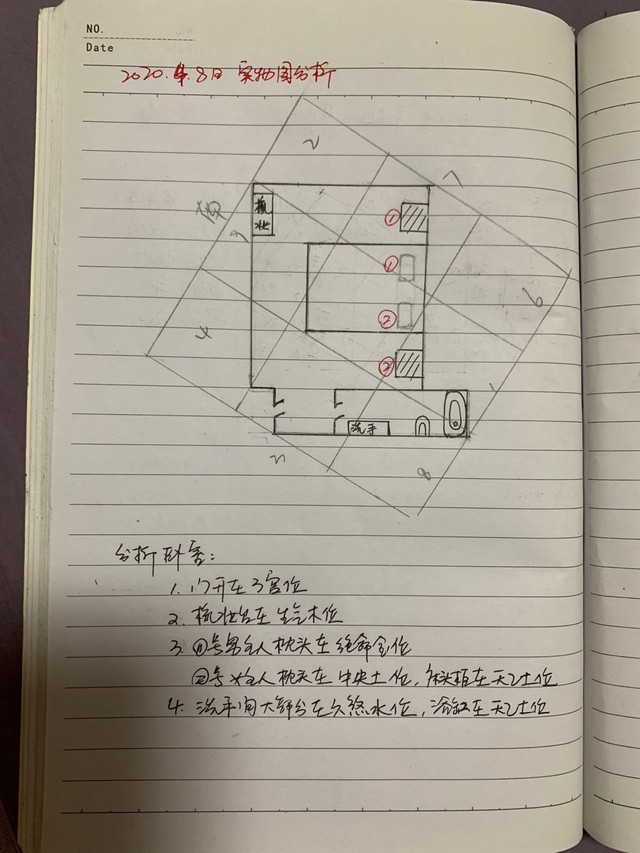 NO.
Date
2020.4.8日 实物图分析
2
南
7
梳
妆
①
9
①
6
4
②
②
1
洗手
3
8
分析卧室:
1. 门开在3宫位
2. 梳妆台在生气木位
3. ①号男主人枕头在绝命金位
②号女主人枕头在中央土位,床头柜在天乙土位
4. 洗手间大部分在六煞水位,浴缸在天乙土位